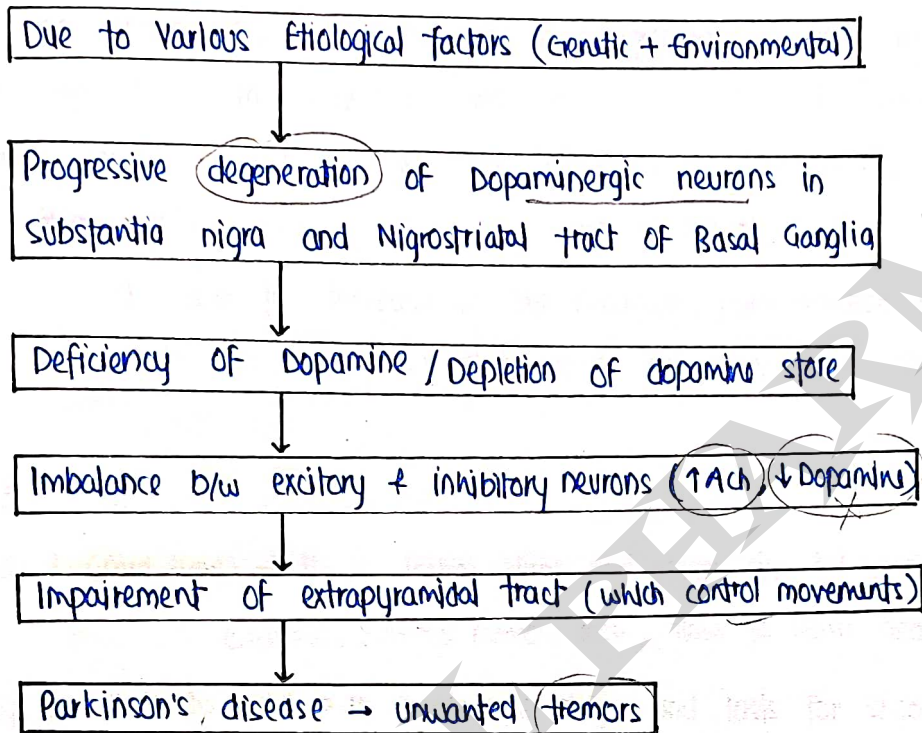 Due to Various Etiological factors (Genetic + Environmental)
Progressive degeneration of Dopaminergic neurons in
Substantia nigra and Nigrostriatal tract of Basal Ganglia
Deficiency of Dopamine / Depletion of dopamine store
Imbalance b/w excitory & inhibitory neurons (↑Ach, ↓Dopamine)
Impairement of extrapyramidal tract (which control movements)
Parkinson's disease → unwanted tremors
PHARM